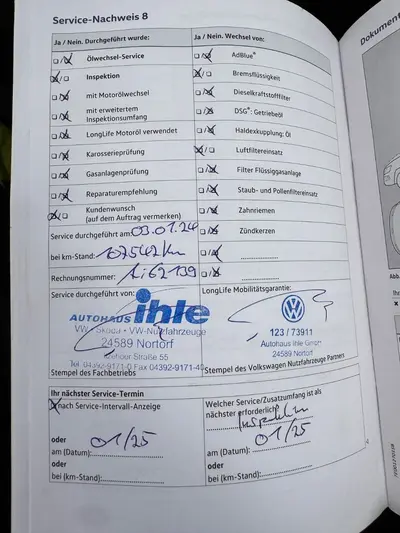 Service-Nachweis 8
Ja / Nein. Durchgeführt wurde:
Ölwechsel-Service
Inspektion
mit Motorölwechsel
mit erweitertem
Inspektionsumfang
LongLife Motoröl verwendet
Karosserieprüfung
Gasanlagenprüfung
Reparaturempfehlung
Kundenwunsch
(auf dem Auftrag vermerken)
Service durchgeführt am: 03.01.24
bei km-Stand: 107542 km
Rechnungsnummer: 1i62139
Ja / Nein. Wechsel von:
AdBlue®
Bremsflüssigkeit
Dieselkraftstofffilter
DSG®: Getriebeöl
Haldexkupplung: Öl
Luftfiltereinsatz
Filter Flüssiggasanlage
Staub- und Pollenfiltereinsatz
Zahnriemen
Zündkerzen
Service durchgeführt von:
AUTOHAUS ihle
VW · Skoda · VW-Nutzfahrzeuge
24589 Nortorf
Straße 55
Tel. 04392-91/1-0 Fax 04392-9171-40
Stempel des Fachbetriebs
LongLife Mobilitätsgarantie:
123 / 73911
Autohaus Ihle GmbH
24589 Nortorf
Stempel des Volkswagen Nutzfahrzeuge Partners
Ihr nächster Service-Termin
nach Service-Intervall-Anzeige
oder
01/25
am (Datum):
oder
bei (km-Stand):
Welcher Service/Zusatzumfang ist als
nächster erforderlich?
Inspektion
01/25
am (Datum):
oder
bei (km-Stand):
Dokument
Abb.